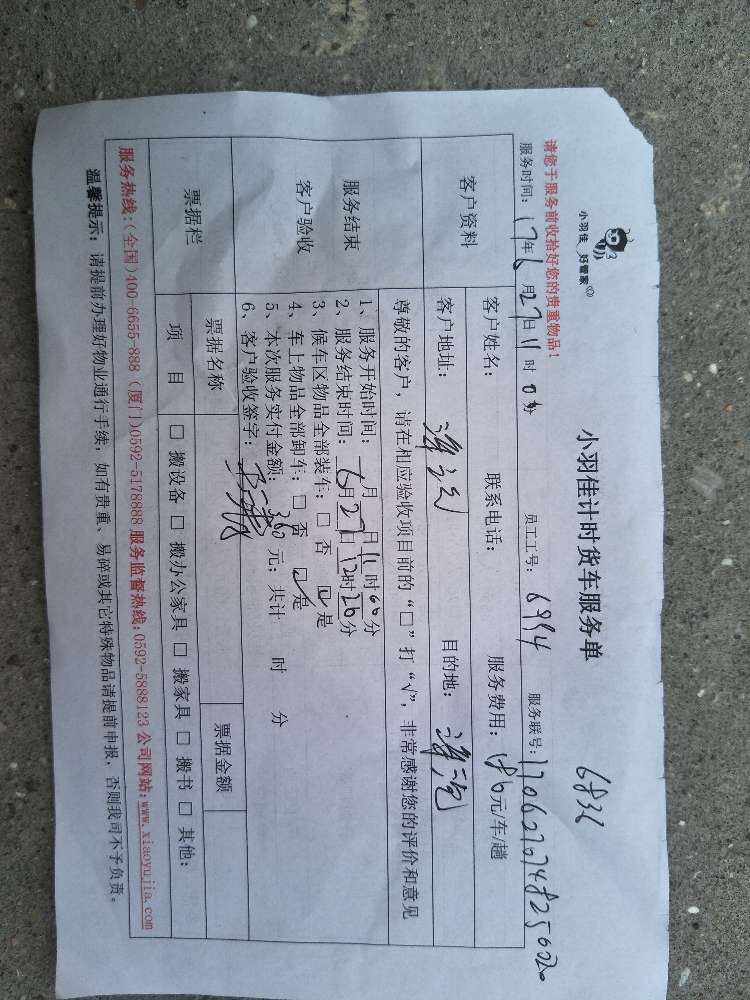 小羽佳 好管家
小羽佳计时货车服务单
6832
请您于服务前收拾好您的贵重物品！
服务时间：17年6月27日11时0分 员工工号：6994 服务联号：
客户资料
客户姓名： 联系电话： 服务费用： 元/车/趟
客户地址： 目的地：
服务结束
客户验收
尊敬的客户，请在相应验收项目前的“□”打“√”，非常感谢您的评价和意见
1、服务开始时间： 月 日11时00分
2、服务结束时间：6月27日12时26分
3、候车区物品全部装车：□ 否 ☑ 是
4、车上物品全部卸车：□ 否 ☑ 是
5、本次服务实付金额：360元；共计 时 分
6、客户验收签字：
票据栏
票据名称 票据金额
项 目 □ 搬设备 □ 搬办公家具 □ 搬家具 □ 搬书 □ 其他：
服务热线：(全国)400-6655-888 (厦门)0592-5178888 服务监督热线：0592-5888123 公司网站：www.xiaoyujia.com
温馨提示：请提前办理好物业通行手续，如有贵重、易碎或其它特殊物品请提前申报，否则我司不予负责。